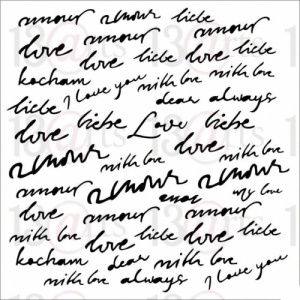 amour amour liebe
love amour amour
love liebe love liebe
kocham I love you with love with love
liebe dear always
love liebe Love liebe
amour with love amour amour
amour amour amour my love
love amour amour
with love love liebe love liebe
kocham dear with love
with love always I love you